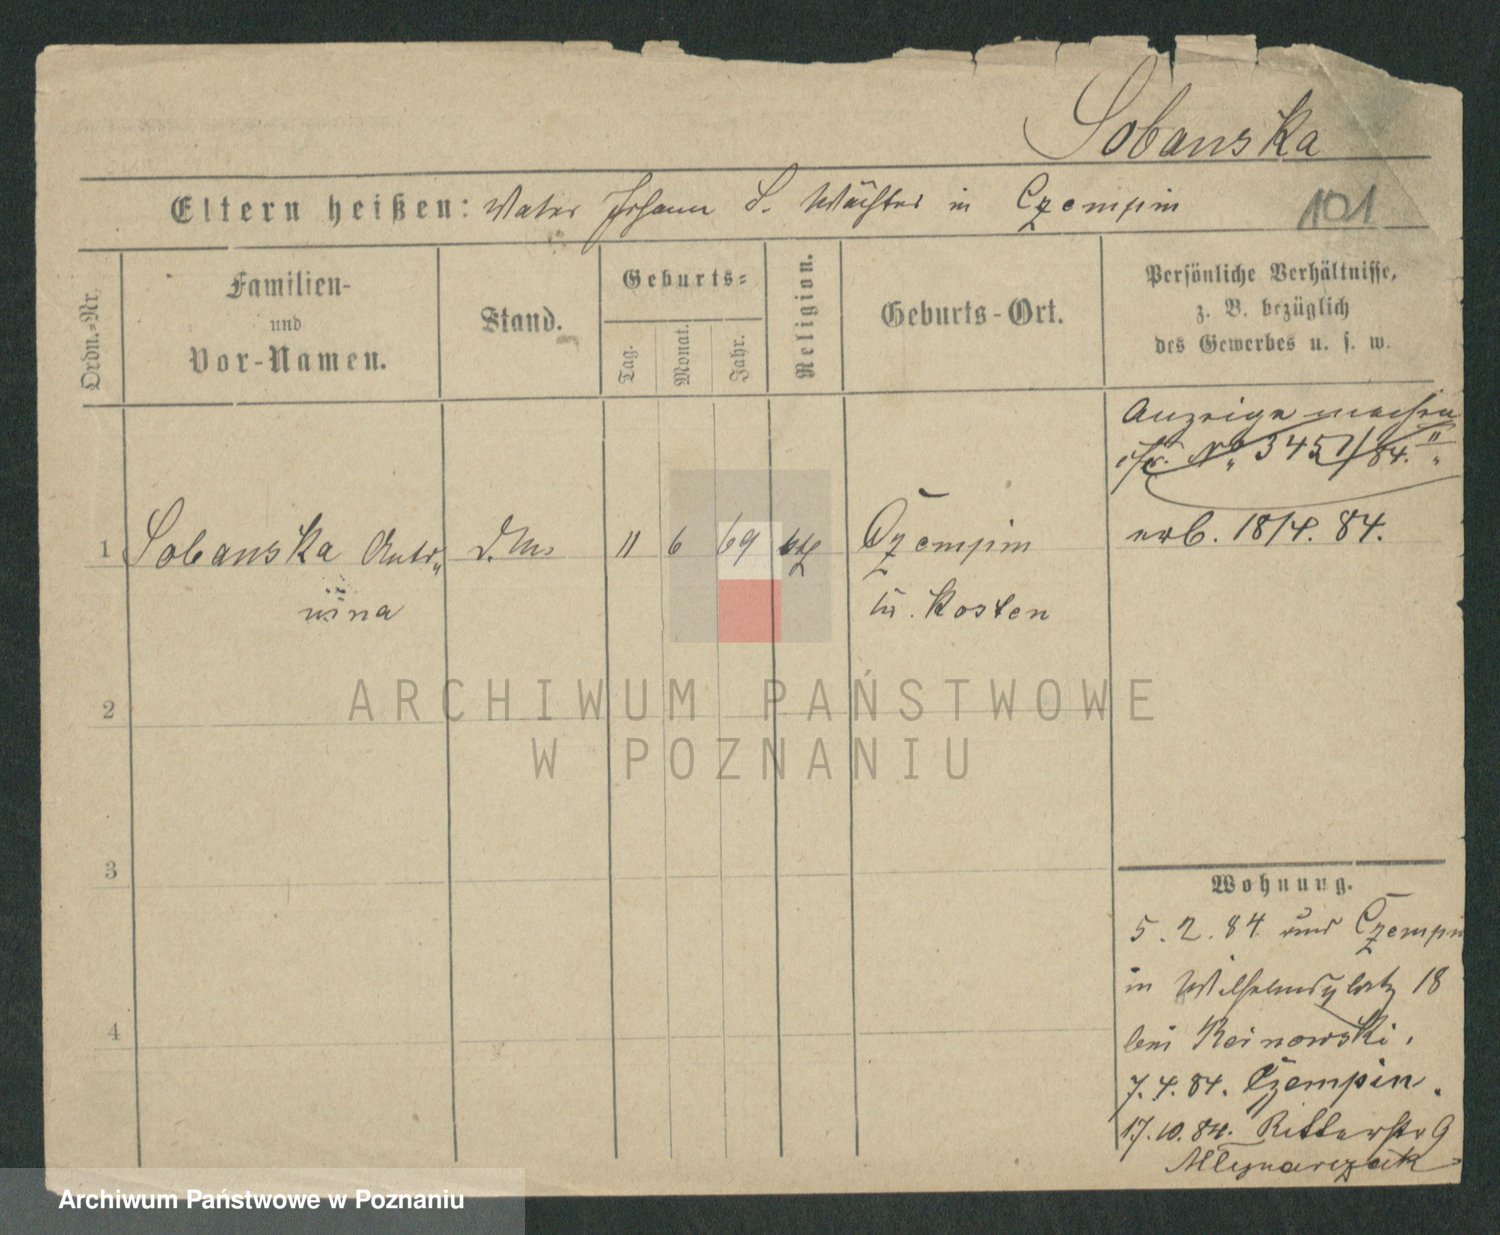 Sobanska
Eltern heißen: Vater Johann S. Wächter in Czempin
101
Ordn.-Nr.
Familien-
und
Vor-Namen.
Stand.
Geburts-
Tag.
Monat.
Jahr.
Religion.
Geburts-Ort.
Persönliche Verhältnisse,
z. B. bezüglich
des Gewerbes u. s. w.
Anzeige machen
cfr. No 3457/84.
1 Sobanska Anto-
nina
d. M.
11 6 69 kth
Czempin
Kr. Kosten
erb. 18/4. 84.
2
3
4
ARCHIWUM PAŃSTWOWE
W POZNANIU
Wohnung.
5. 2. 84 aus Czempin
in Wilhelmsplatz 18
bei Reinowski.
7. 4. 84. Czempin.
17. 10. 84. Ritterstr 9
Mlynarczak
Archiwum Państwowe w Poznaniu